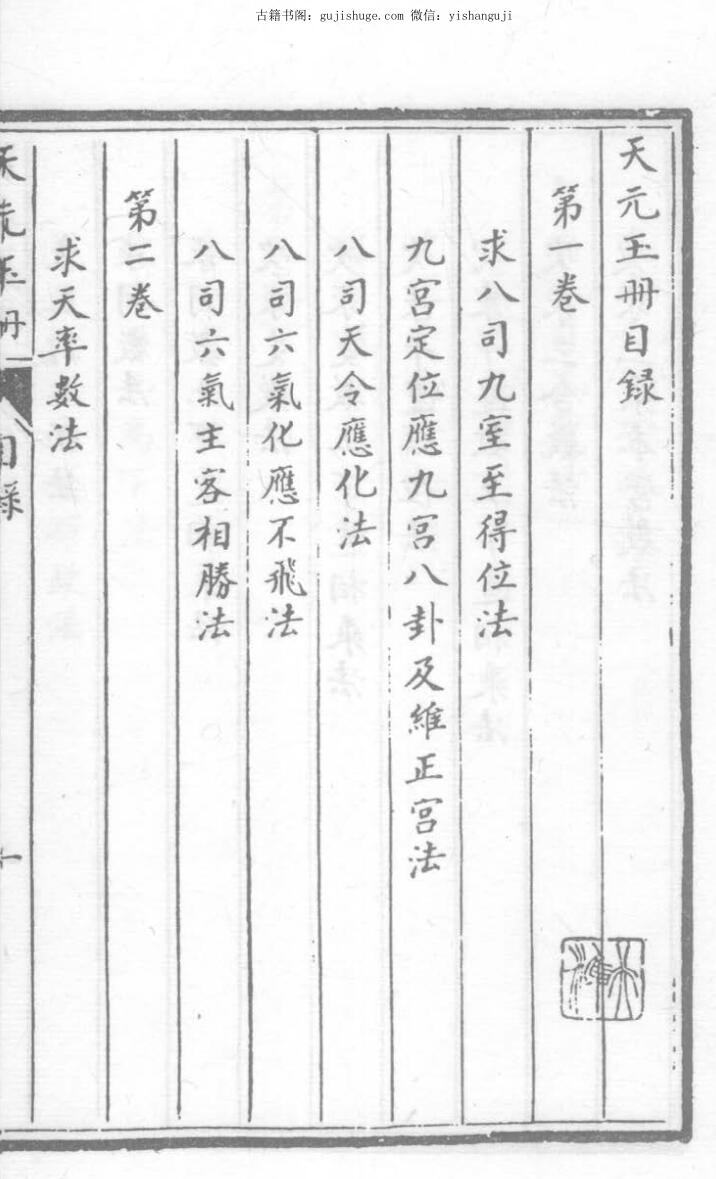 古籍书阁: gujishuge.com 微信: yishanguji
天元玉冊目録
第一卷
求八司九室至得位法
九宮定位應九宮八卦及維正宮法
八司天令應化法
八司六氣化應不飛法
八司六氣主客相勝法
第二卷
求天率數法
天元玉冊
目録
一